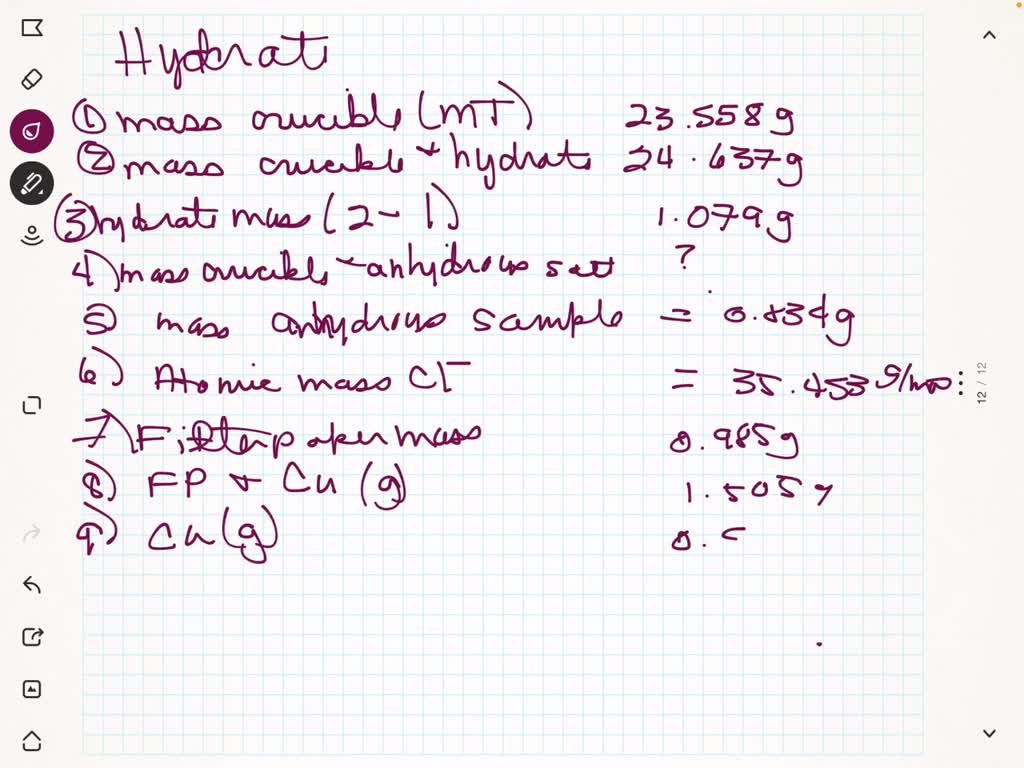 Hydrati
① mass crucible (mT) 23.558g
② mass crucible + hydrate 24.637g
③ hydrate mass (2-1) 1.079g
4) mass crucible - anhydrous salt ?
⑤ mass anhydrous sample = 0.834g
6) Atomic mass Cl⁻ = 35.453 g/mo
7) Filter paper mass 0.985g
8) FP + Cu (g) 1.505g
9) Cu (g) 0.5
12 / 12